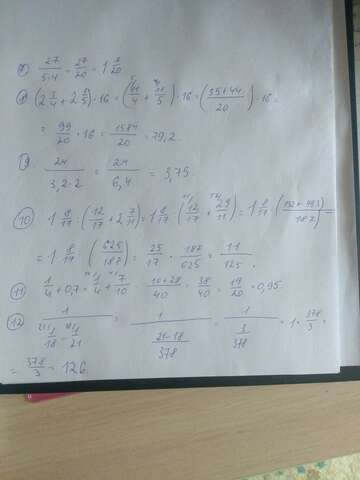 7) 27/5·4 = 27/20 = 1 7/20
8) (2 3/4 + 2 1/5) · 16 = (11/4 + 11/5) · 16 = (55+44/20) · 16 =
= 99/20 · 16 = 1584/20 = 79,2.
9 24/3,2·2 = 24/6,4 = 3,75.
10) 1 8/17 : (12/17 + 2 7/11) = 1 8/17 : (12/17 + 29/11) = 1 8/17 : (132+493/187) =
= 1 8/17 : (625/187) = 25/17 · 187/625 = 11/125.
11 1/4 + 0,7 = 1/4 + 7/10 = 10+28/40 = 38/40 = 19/20 = 0,95.
12) 1/1/18 - 1/21 = 1/21-18/378 = 1/3/378 = 1 · 378/3 =
= 378/3 = 126